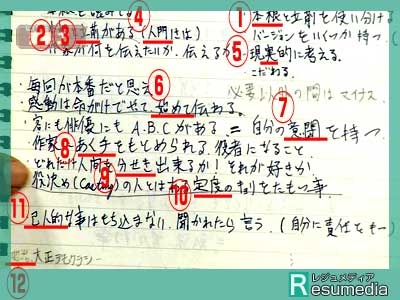 ① 本根と立前を使い分ける
② ③ 立前がある(人間さは) ④
バージョンをいくつか持つ(
作家が何を伝えたいか、伝えるか ⑤ 現実的に考える。
こだわる。
毎回が本番だと思え ⑥ 必要以外の間はマイナス
・感動は命がけでやって始めて伝わる。 ⑦
・客にも俳優にもA.B.Cがある = 自分の意聞を持つ
・作家 ⑧ あく手をもとめられる役者になること
・どれだけ人間を分せき出来るか!それが好きか
役決め(Casting)の人とはある定度のきょりをたもつ事。 ⑨ ⑩
⑪ 己人的な事はもち込まない、聞かれたら言う。(自分に責任をもつ)
大正デモクラシー
⑫
レジュメディア
Resumedia